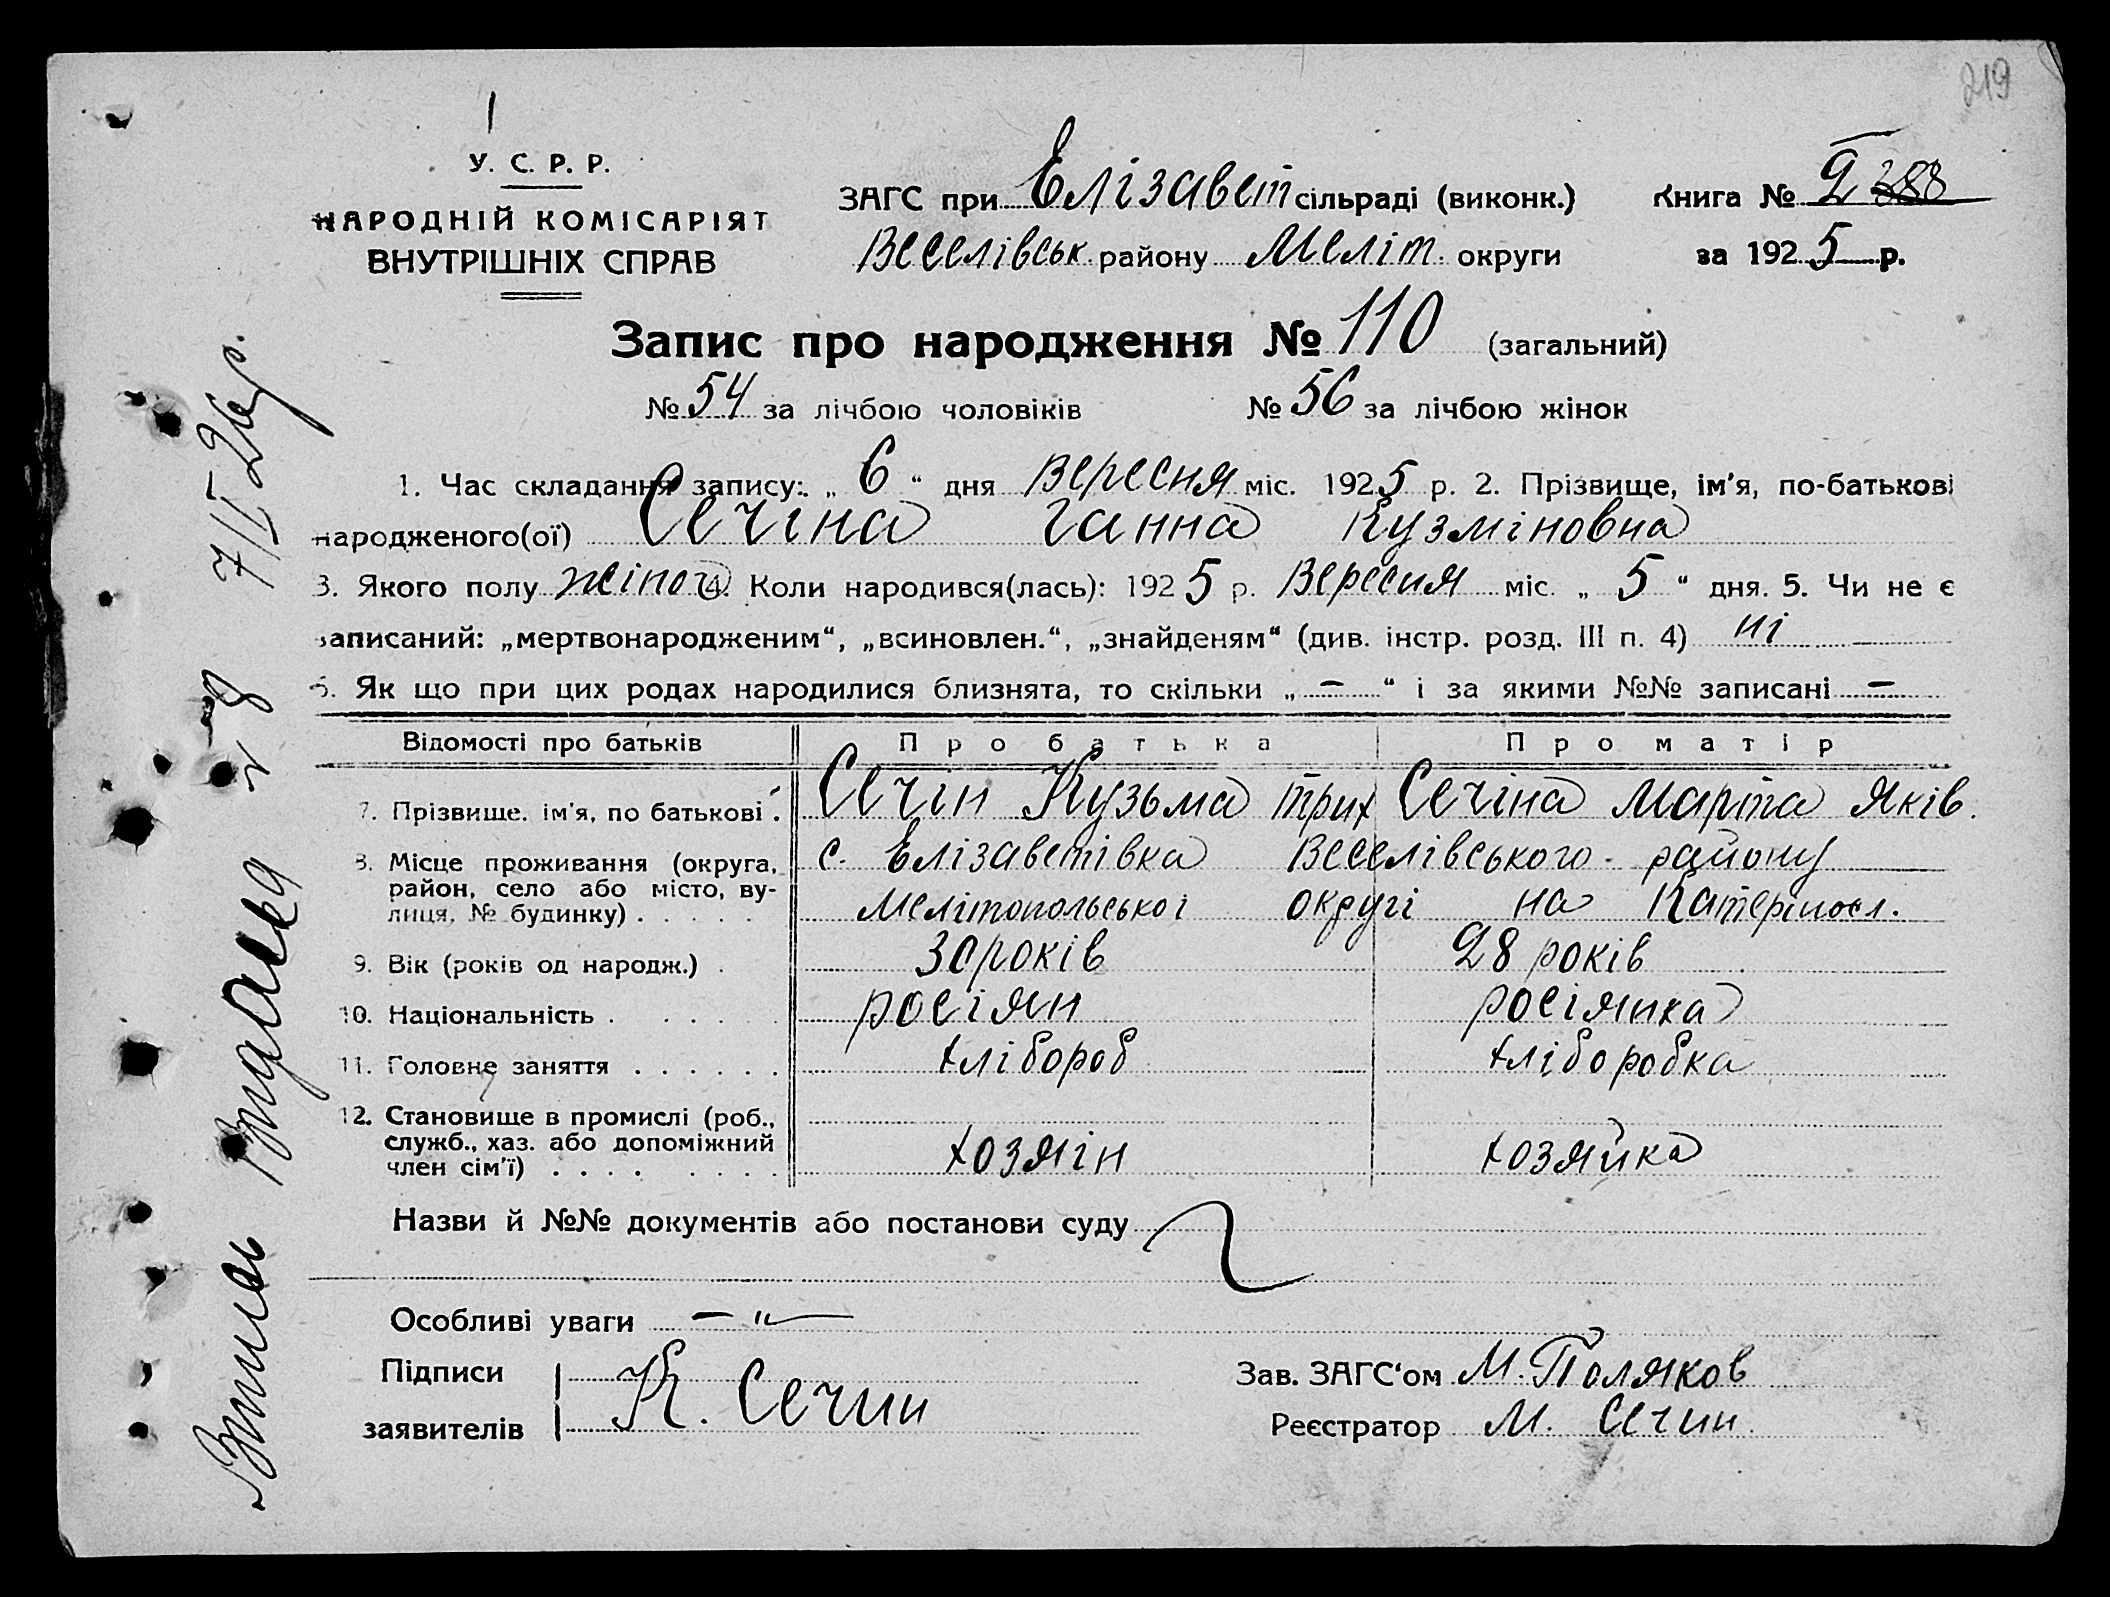 219
У. С. Р. Р.
НАРОДНІЙ КОМІСАРІЯТ
ВНУТРІШНІХ СПРАВ
ЗАГС при Елізавет сільраді (виконк.)
Веселівськ. району Меліт. округи
Книга № 2 388
за 1925 р.
Запис про народження № 110 (загальний)
№ 54 за лічбою чоловіків № 56 за лічбою жінок
1. Час складання запису: „ 6 “ дня Вересня міс. 1925 р. 2. Прізвище, ім'я, по-батькові
народженого(ої) Сечіна Ганна Кузміновна
3. Якого полу жіноч 4. Коли народився(лась): 1925 р. Вересня міс. „ 5 “ дня. 5. Чи не є
записаний: „мертвонародженим“, „всиновлен.“, „знайденям“ (див. інстр. розд. III п. 4) ні
6. Як що при цих родах народилися близнята, то скільки „ — “ і за якими №№ записані —
Відомості про батьків Про батька Про матір
7. Прізвище, ім'я, по батькові . Сечін Кузьма Трих Сечіна Марта Яків.
8. Місце проживання (округа, с. Елізаветівка Веселівського району
район, село або місто, ву-
лиця, № будинку) . . . . . Мелітопольської округі на Катеріносл.
9. Вік (років од народж.) . 30 років 28 років
10. Національність . . . . . росіян росіянка
11. Головне заняття . . . . . . хлібороб хліборобка
12. Становище в промислі (роб.,
служб., хаз. або допоміжний
член сім'ї) . . . . . . . . хозяін хозяйка
Назви й №№ документів або постанови суду
Особливі уваги — " —
Підписи
заявителів К. Сечин
Зав. ЗАГС‘ом М. Поляков
Реєстратор М. Сечин